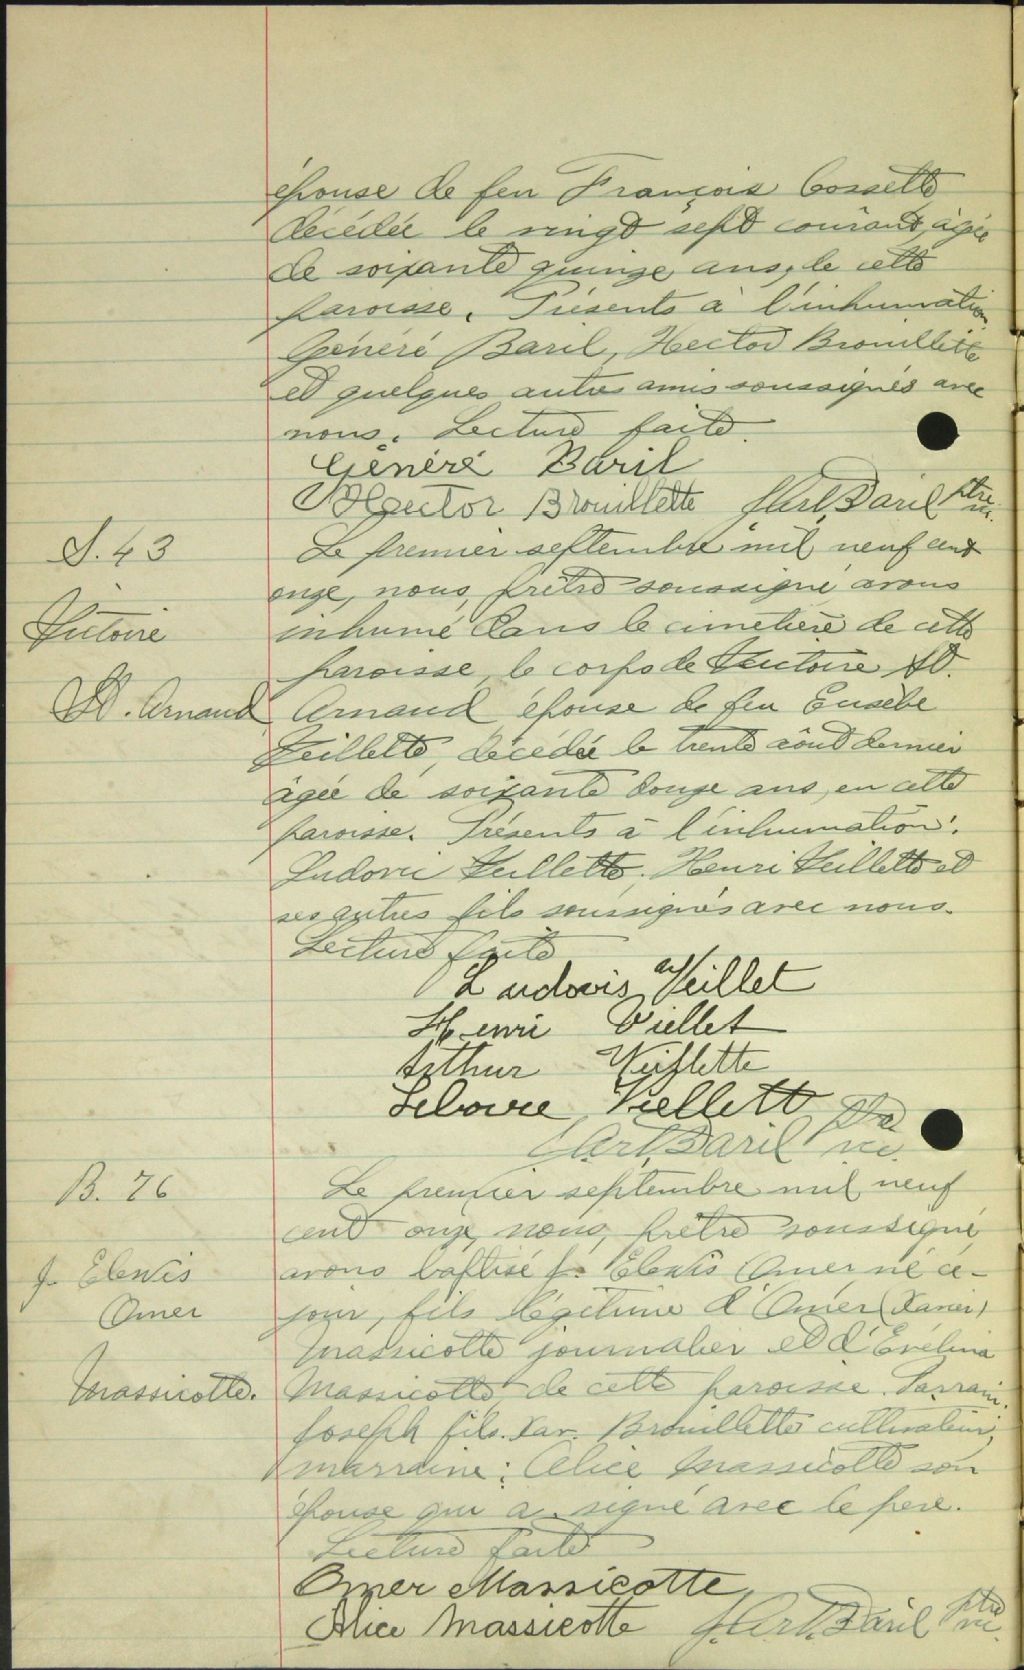 épouse de feu François Cossette
décédée le vingt sept courant, âgée
de soixante quinze ans, de cette
paroisse. Présents à l'inhumation,
Généré Baril, Hector Brouillette
et quelques autres amis soussignés avec
nous. Lecture faite.
Généré Baril
Hector Brouillette J. Art. Baril ptre vic.
S. 43
Victoire
St. Arnaud
Le premier septembre mil neuf cent
onze, nous, prêtre soussigné avons
inhumé dans le cimetière de cette
paroisse, le corps de Victoire St.
Arnaud épouse de feu Eusèbe
Veillette, décédée le trente août dernier
âgée de soixante douze ans, en cette
paroisse. Présents à l'inhumation:
Ludovic Veillette, Henri Veillette et
ses autres fils soussignés avec nous.
Lecture faite
Ludovis Veillet
Henri Viellet
Arthur Veillette
Viellett
J. Art. Baril ptre vic.
B. 76
J. Elexis
Omer
Massicotte.
Le premier septembre mil neuf
cent onze, nous, prêtre soussigné,
avons baptisé J. Elexis Omer né ce-
jour, fils légitime d'Omer (Xavier)
Massicotte journalier et d'Evélina
Massicotte de cette paroisse. Parrain:
Joseph fils. Xav. Brouillette cultivateur;
marraine: Alice Massicotte son
épouse qui a signé avec le père.
Lecture faite
Omer Massicotte
Alice Massicotte J. Art. Baril ptre vic.